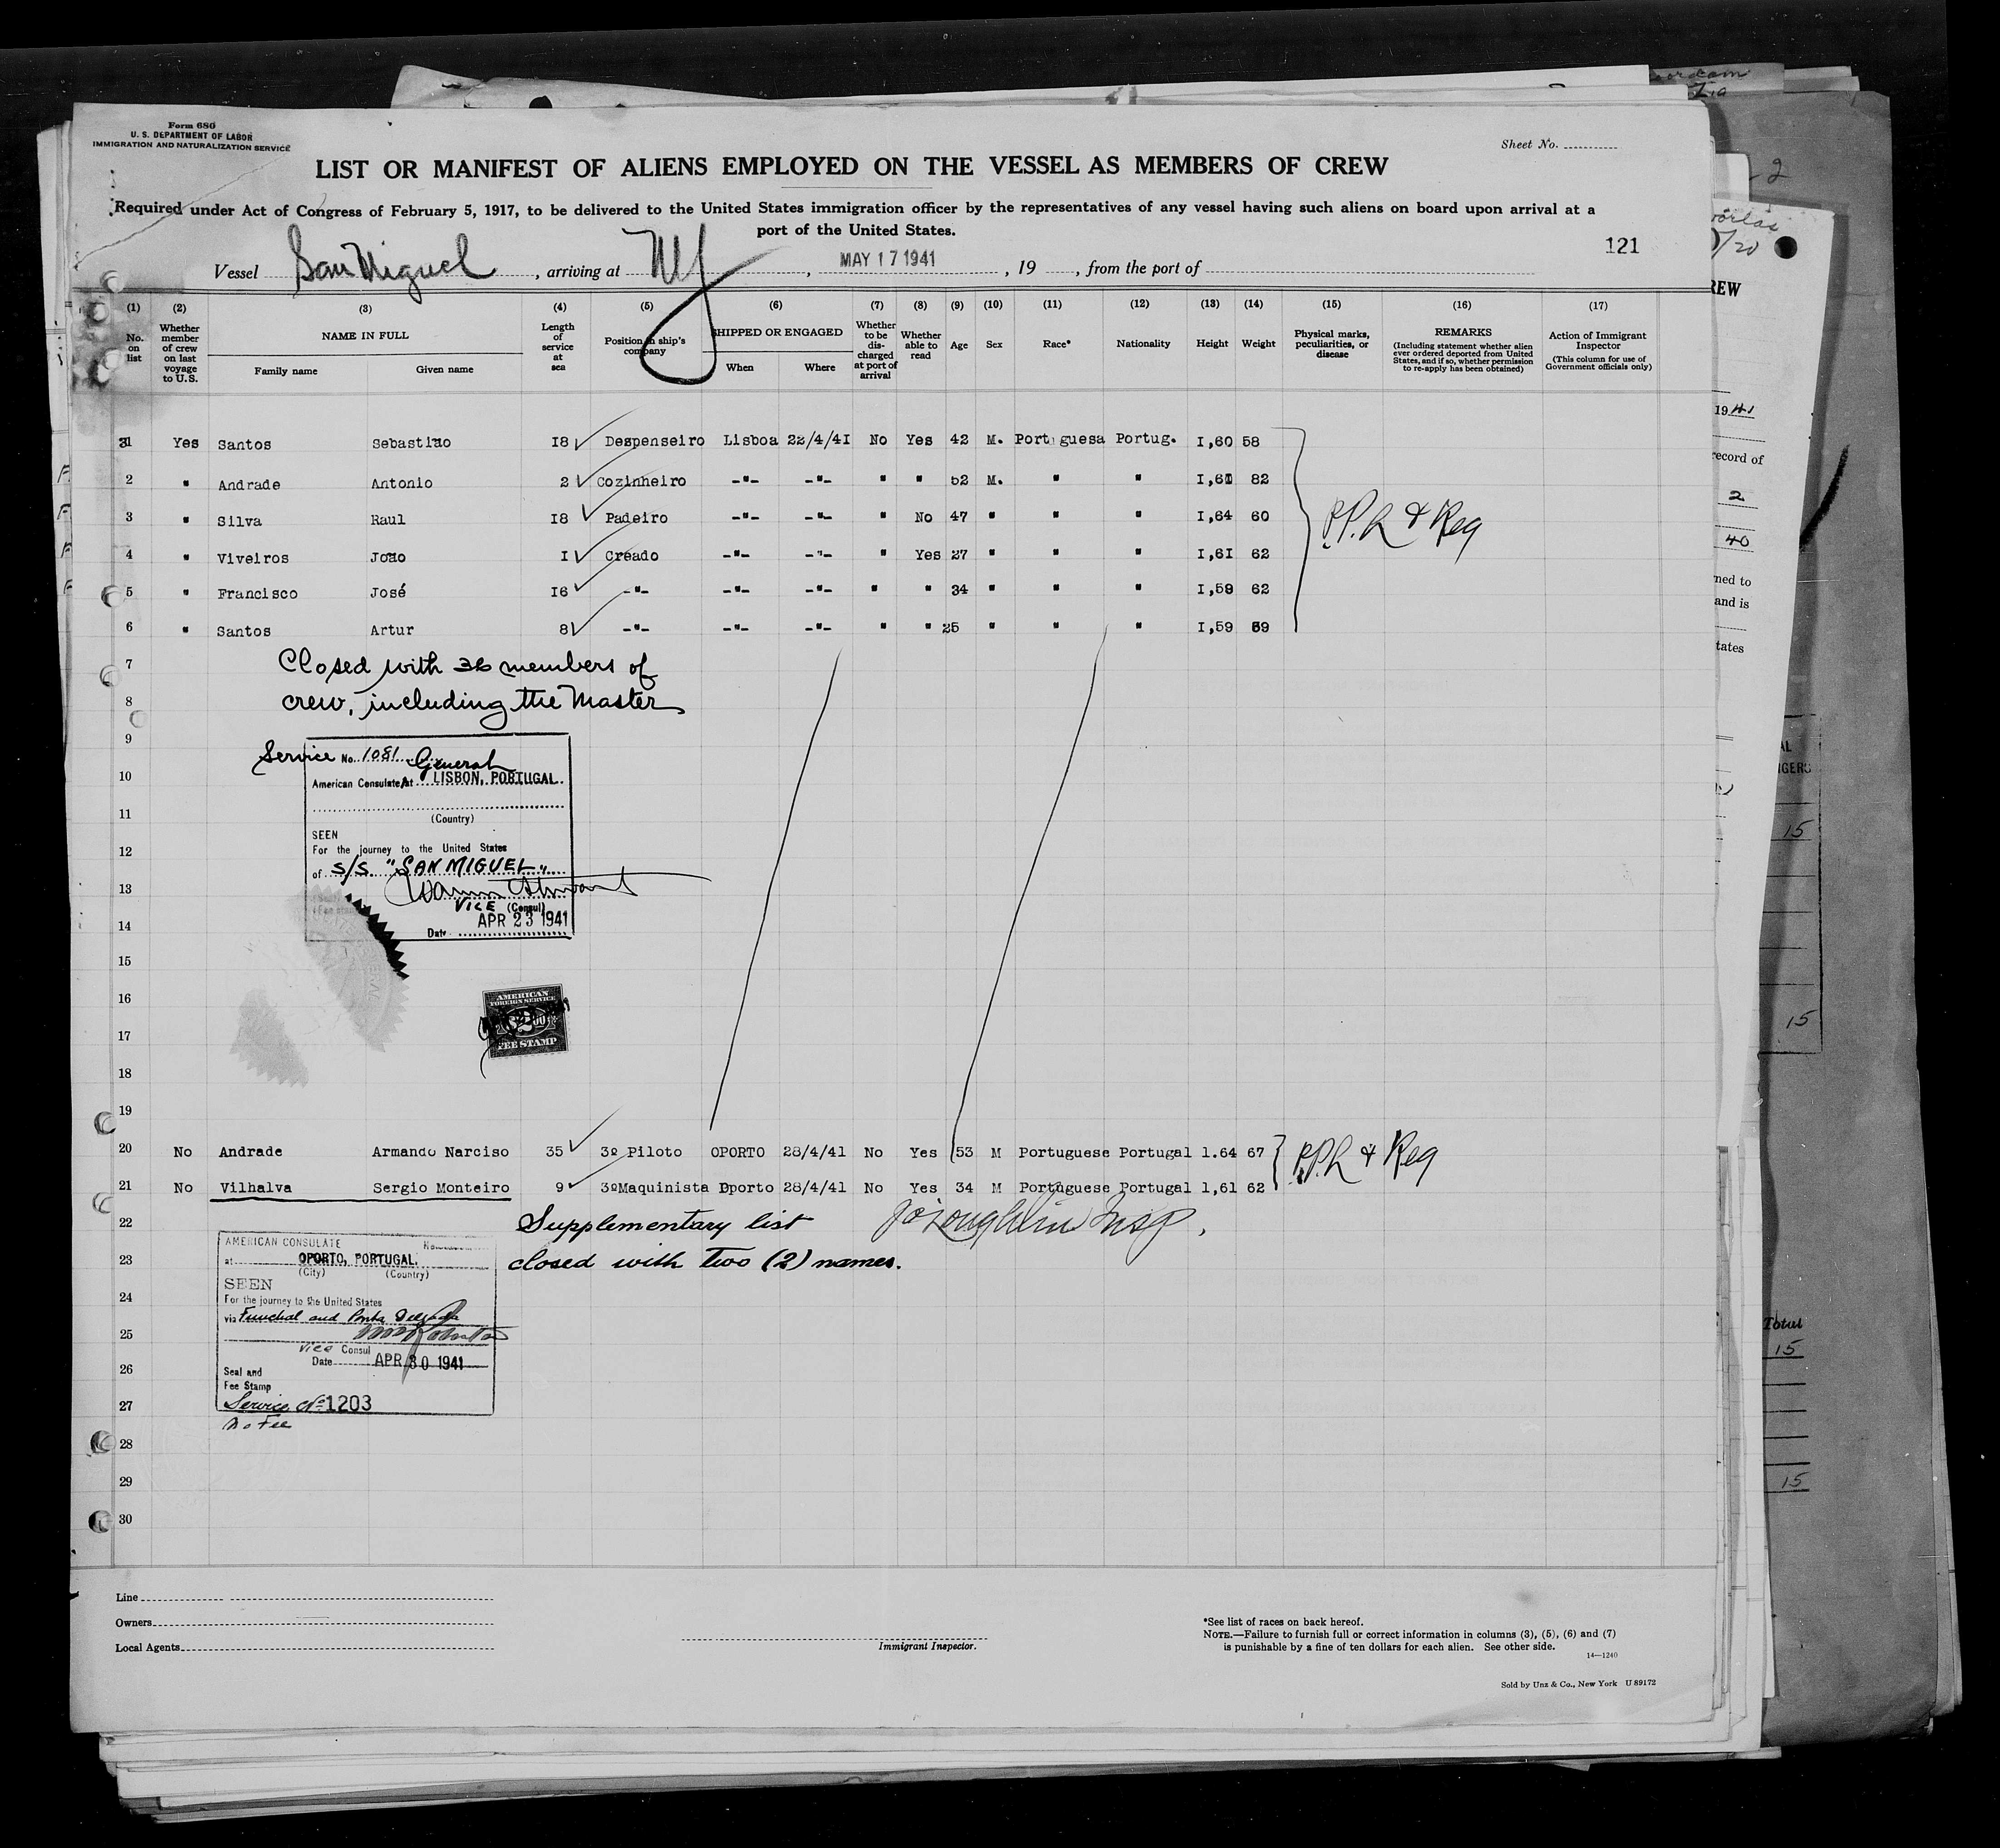 Form 680
U. S. DEPARTMENT OF LABOR
IMMIGRATION AND NATURALIZATION SERVICE
Sheet No.
LIST OR MANIFEST OF ALIENS EMPLOYED ON THE VESSEL AS MEMBERS OF CREW
Required under Act of Congress of February 5, 1917, to be delivered to the United States immigration officer by the representatives of any vessel having such aliens on board upon arrival at a
port of the United States.
121
Vessel San Miguel, arriving at NY, MAY 17 1941, 19, from the port of
(1) (2) (3) (4) (5) (6) (7) (8) (9) (10) (11) (12) (13) (14) (15) (16) (17)
No. on list
Whether member of crew on last voyage to U.S.
NAME IN FULL
Family name Given name
Length of service at sea
Position in ship's company
SHIPPED OR ENGAGED
When Where
Whether to be discharged at port of arrival
Whether able to read
Age
Sex
Race*
Nationality
Height
Weight
Physical marks, peculiarities, or disease
REMARKS
(Including statement whether alien ever ordered deported from United States, and if so, whether permission to re-apply has been obtained)
Action of Immigrant Inspector
(This column for use of Government officials only)
31 Yes Santos Sebastiao 18 Despenseiro Lisboa 22/4/41 No Yes 42 M. Portuguesa Portug. 1,60 58
2 " Andrade Antonio 2 Cozinheiro -"- -"- " " 52 M. " " 1,61 82
3 " Silva Raul 18 Padeiro -"- -"- " No 47 " " " 1,64 60
4 " Viveiros João 1 Creado -"- -"- " Yes 27 " " " 1,61 62
5 " Francisco José 16 -"- -"- -"- " " 34 " " " 1,58 62
6 " Santos Artur 8 -"- -"- -"- " " 25 " " " 1,59 59
P.P.R & Reg
7 Closed with 36 members of
8 crew, including the Master
9
Service No. 1081 General
10
American Consulate at LISBON, PORTUGAL.
11
(Country)
SEEN
12
For the journey to the United States
of S/S. "SAN MIGUEL"
13
VICE (Consul)
14
Date APR 23 1941
15
16
AMERICAN
FOREIGN SERVICE
17
FEE STAMP
18
19
20 No Andrade Armando Narciso 35 3º Piloto OPORTO 28/4/41 No Yes 53 M Portuguese Portugal 1.64 67
21 No Vilhalva Sergio Monteiro 9 3ºMaquinista Oporto 28/4/41 No Yes 34 M Portuguese Portugal 1,61 62
P.P.R & Reg
22 Supplementary list
23 closed with two (2) names.
AMERICAN CONSULATE
at OPORTO, PORTUGAL.
(City) (Country)
SEEN
24
For the journey to the United States
via Funchal and Ponta Delgada
25
Vice Consul
Date APR 30 1941
26
Seal and
Fee Stamp
27
Service Nº 1203
No Fee
28
29
30
Line
Owners
Local Agents
Immigrant Inspector.
*See list of races on back hereof.
NOTE.—Failure to furnish full or correct information in columns (3), (5), (6) and (7)
is punishable by a fine of ten dollars for each alien. See other side.
14—1240
Sold by Unz & Co., New York U 89172
REW
1941
record of
2
40
ned to
and is
tates
15
15
Total
15
15